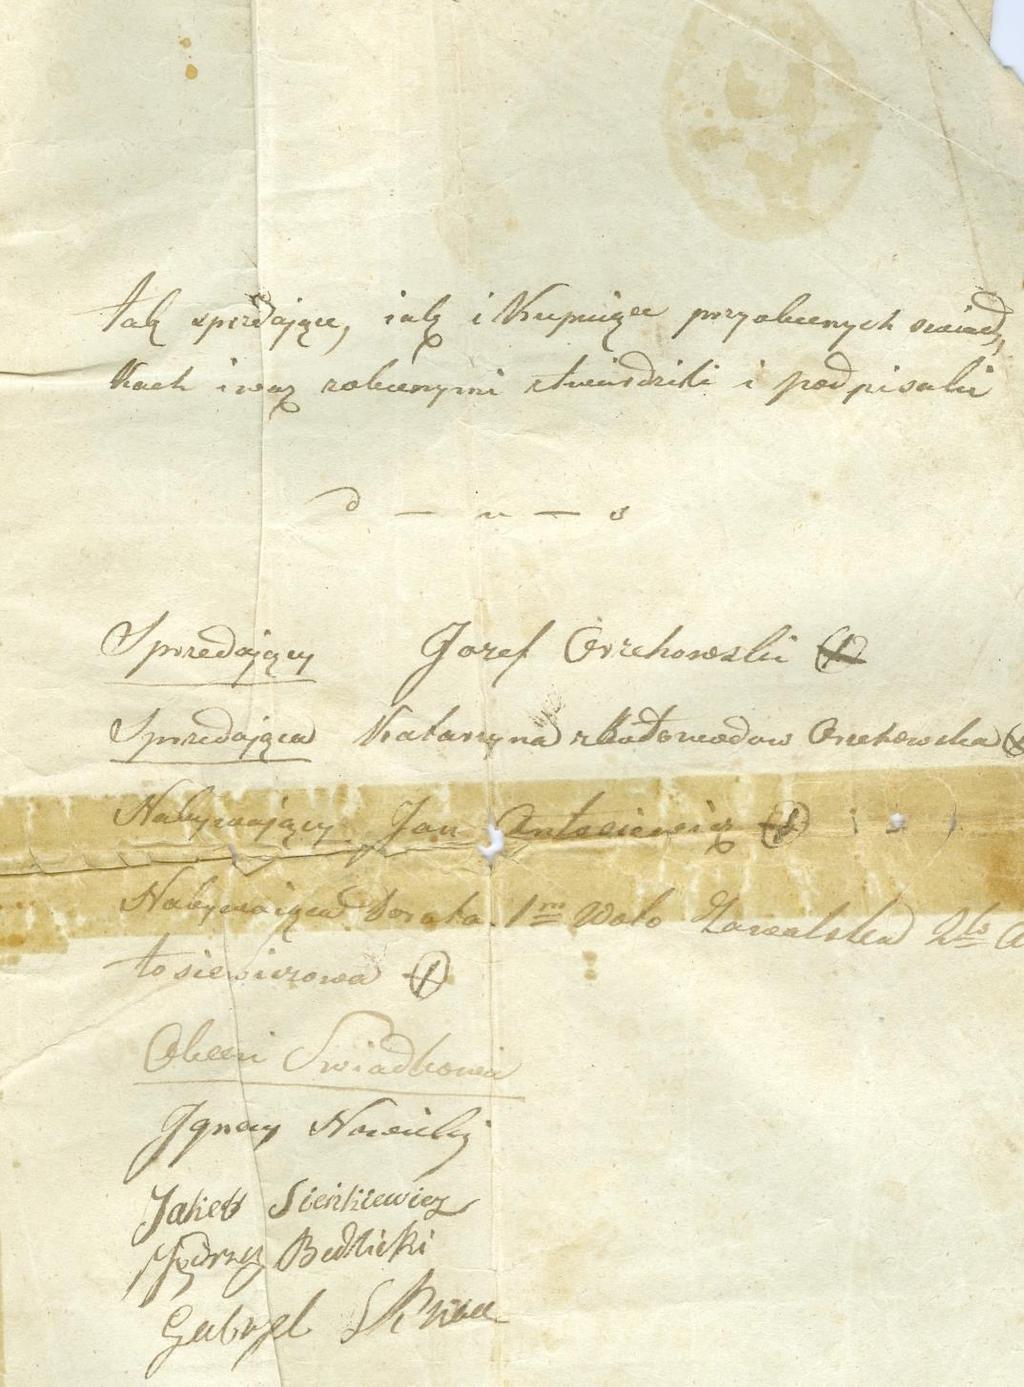 tak sprzedające, iak i Kupuiące przy obecnych swiad,
kach i nas obecnymi stwierdzili i podpisali
d — u — s
Sprzedaiący Jozef Orzechowski
Sprzedaiąca Katarzyna Orzechowska
Nabywaiący Jan Antosiewicz
Nabywaiąca Dorota 1mo Voto Zawalska 2do An
tosiewiczowa
Obecni Swiadkowie
Ignacy Nowicki
Jakób Sienkiewicz
Jędrzej Bedlicki
Gabryel